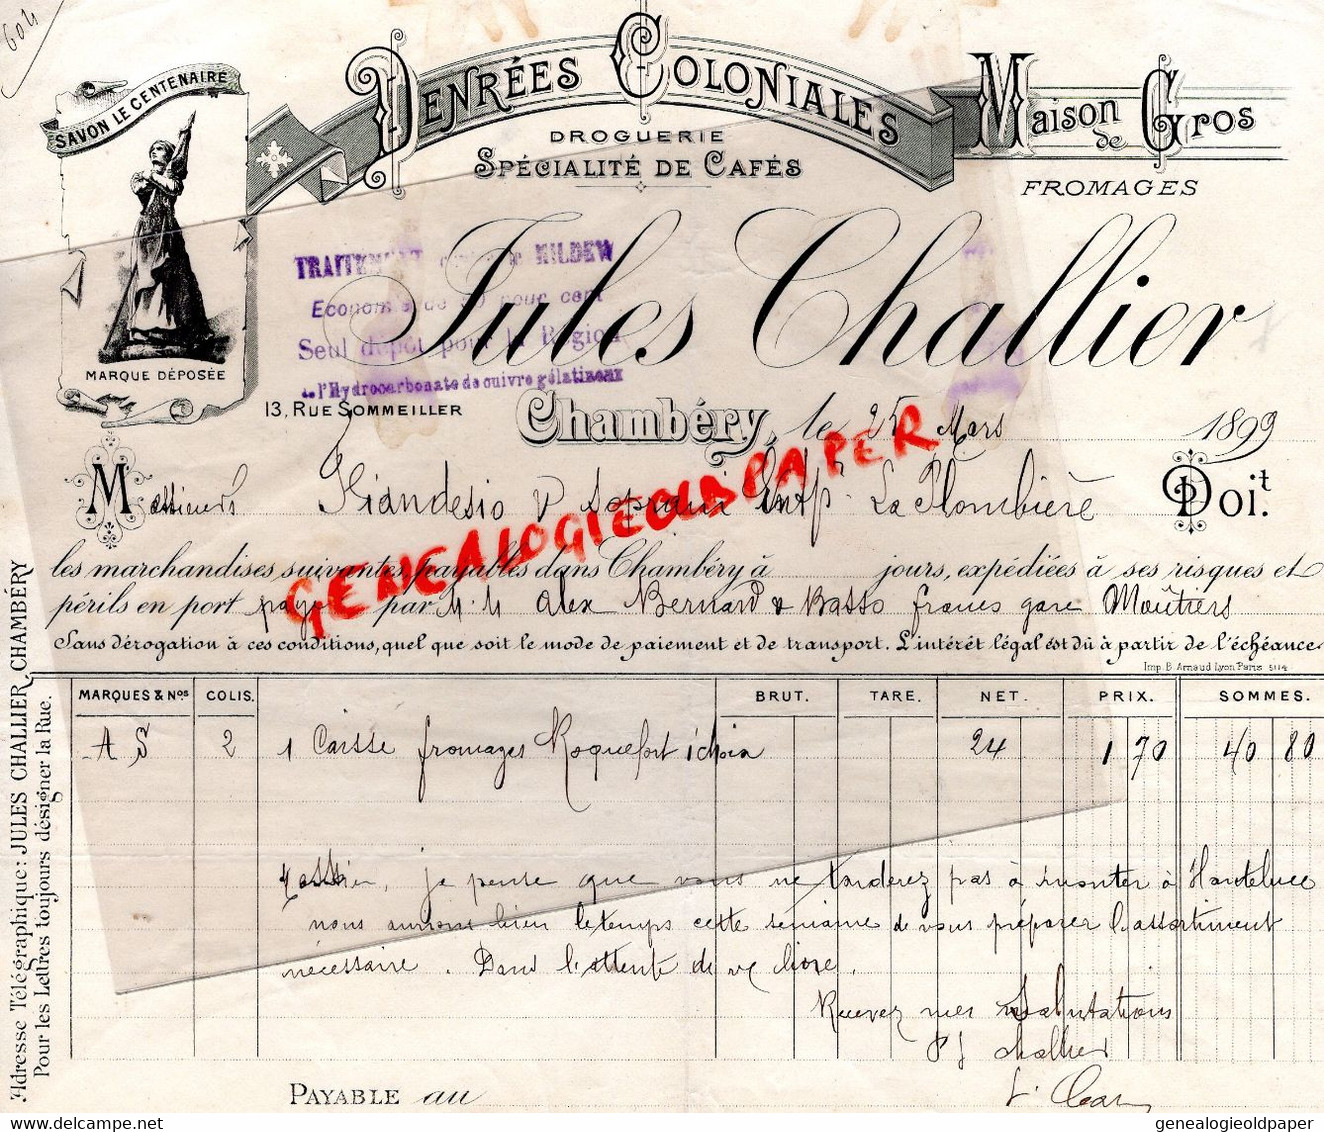 604
SAVON LE CENTENAIRE
MARQUE DÉPOSÉE
DENRÉES COLONIALES
DROGUERIE
SPÉCIALITÉ DE CAFÉS
Maison de Gros
FROMAGES
Jules Challier
TRAITEMENT MILDEW
Economie de pour cent
Seul dépôt pour la Région
l'Hydrocarbonate de cuivre gélatineux
13, RUE SOMMEILLER
Chambéry, le 25 Mars 1899
Messieurs La Plombière Doit.
les marchandises suivantes payables dans Chambéry à jours, expédiées à ses risques et
périls en port payé par M. M Alex Bernard & Basso francs gare Moûtiers
Sans dérogation à ces conditions, quel que soit le mode de paiement et de transport. L'intérêt légal est dû à partir de l'échéance
Imp. B. Arnaud Lyon Paris 5114
MARQUES & Nos COLIS. BRUT. TARE. NET. PRIX. SOMMES.
A S 2 1 Caisse fromages Roquefort choix 24 1 70 40 80
je pense que vous ne tarderez pas à monter à Hauteluce
nous aurons bien le temps cette semaine de vous préparer l'assortiment
nécessaire. Dans l'attente de
Recevez mes Salutations
Challier
PAYABLE au
Adresse Télégraphique: JULES CHALLIER CHAMBÉRY
Pour les Lettres toujours désigner la Rue.
GENEALOGIEOLDPAPER
genealogieoldpaper